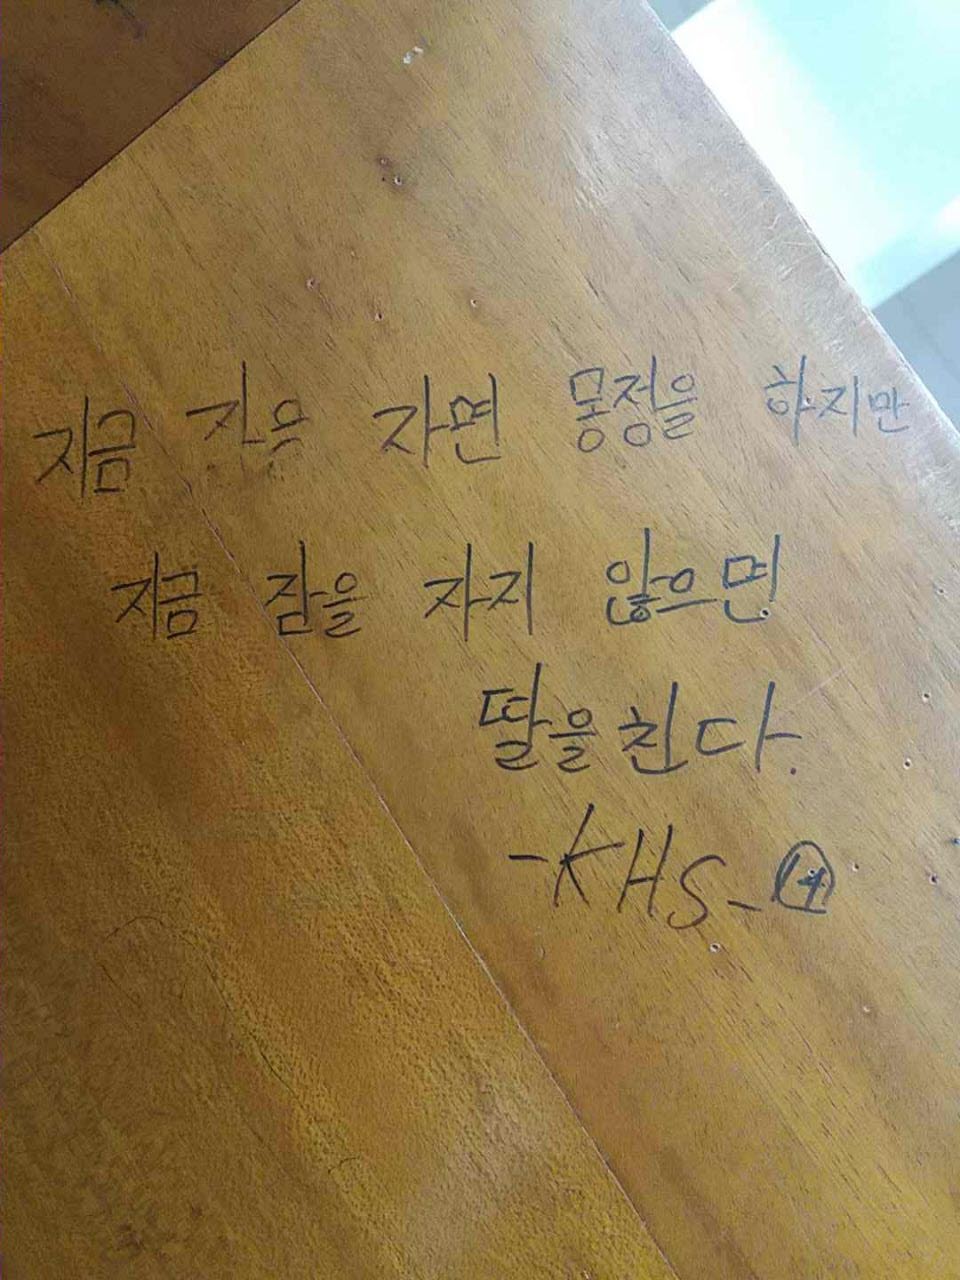 지금 자면 몽정을 하지만
지금 잠을 자지 않으면
딸을 친다.
-KHS-